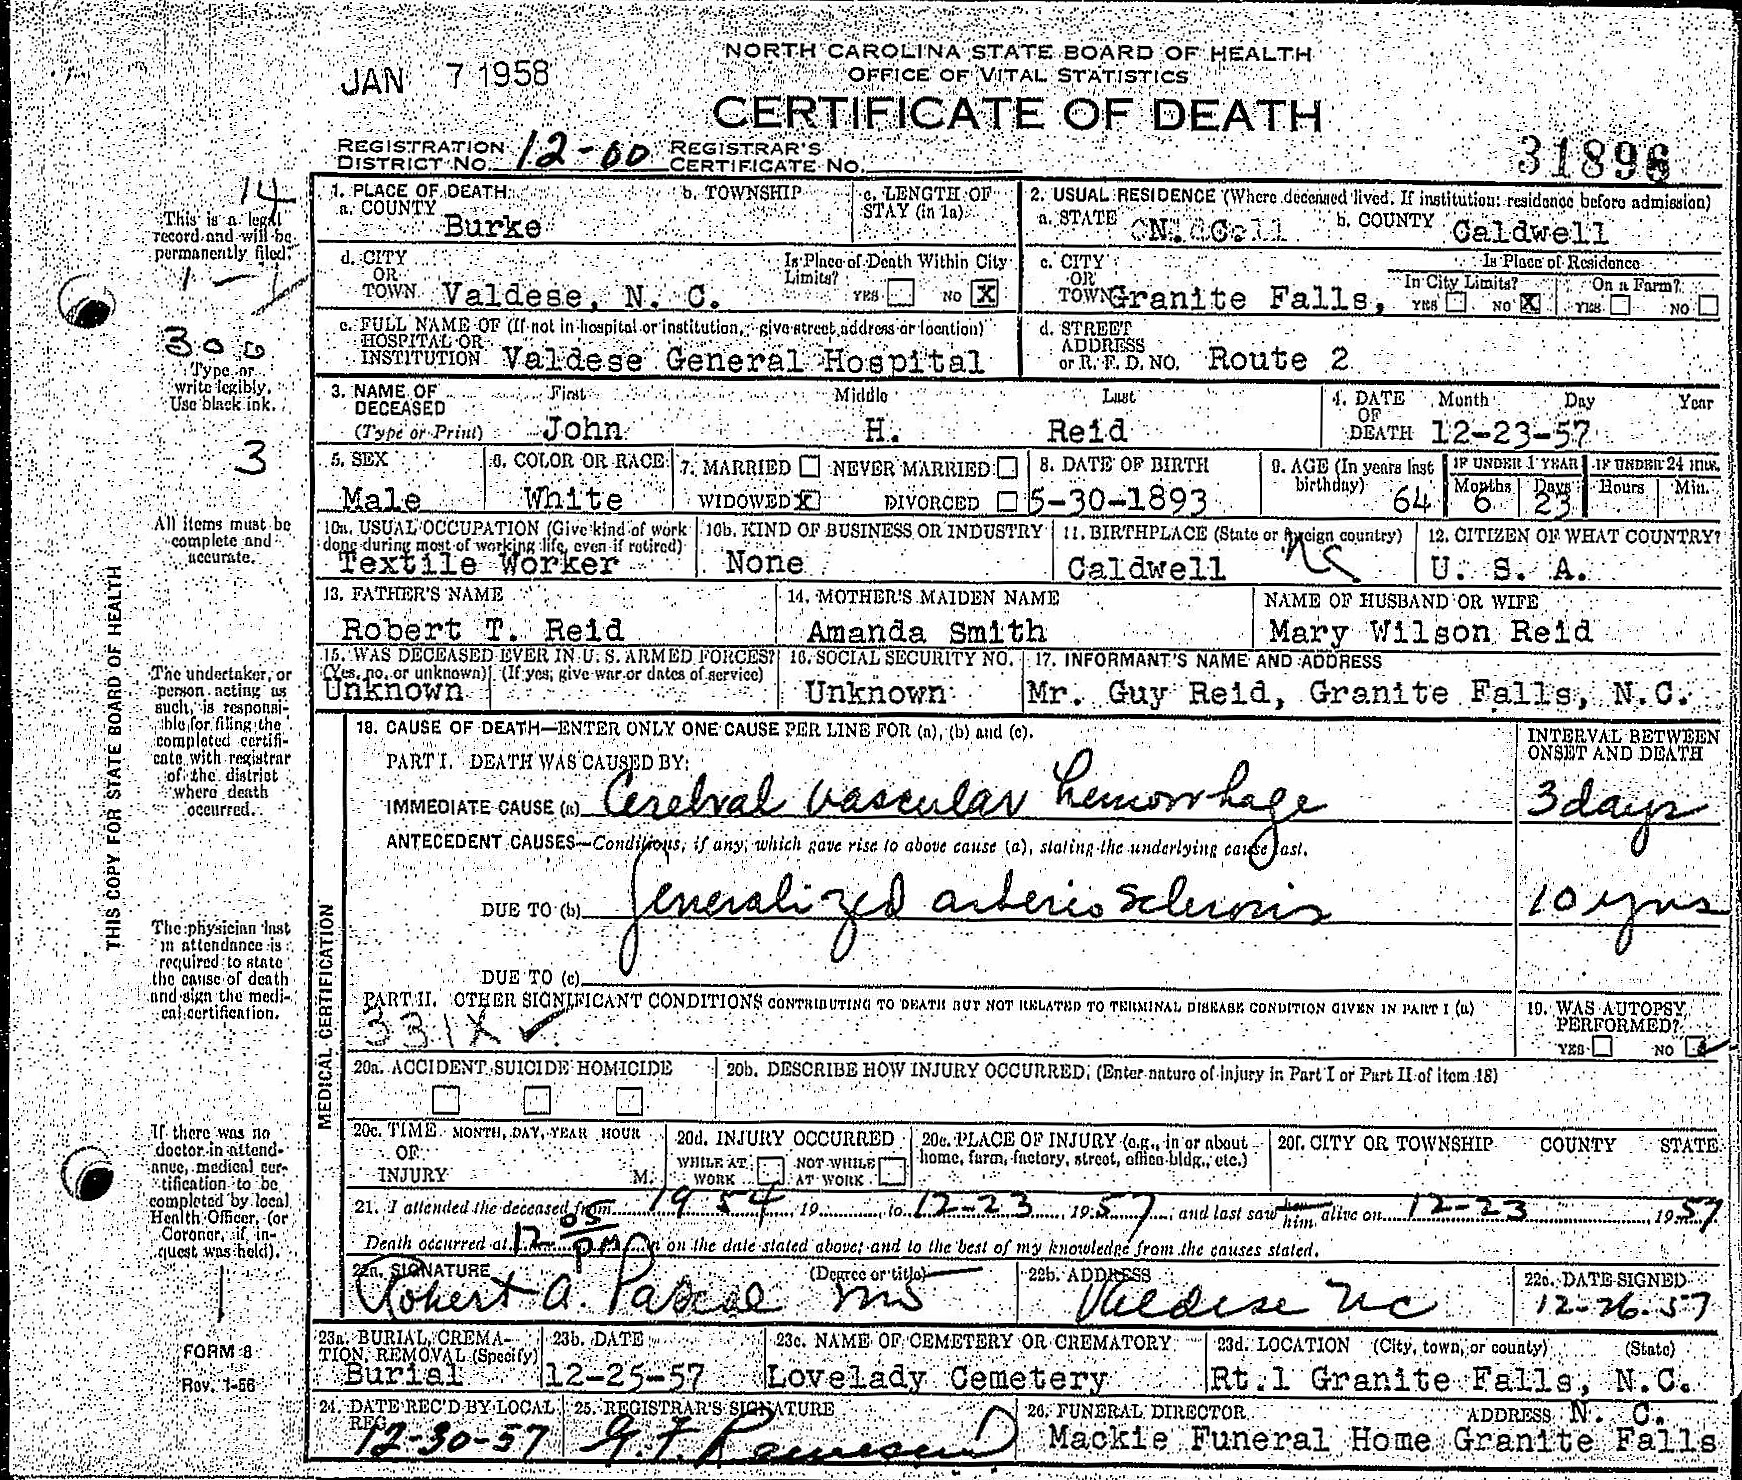 NORTH CAROLINA STATE BOARD OF HEALTH
OFFICE OF VITAL STATISTICS
JAN 7 1958
CERTIFICATE OF DEATH
REGISTRATION DISTRICT NO. 12-00 REGISTRAR'S CERTIFICATE NO.
31896
14
This is a legal record and will be permanently filed.
300
Type or write legibly. Use black ink.
3
All items must be complete and accurate.
THIS COPY FOR STATE BOARD OF HEALTH
The undertaker, or person acting as such, is responsible for filing the completed certificate with registrar of the district where death occurred.
The physician last in attendance is required to state the cause of death and sign the medical certification.
If there was no doctor in attendance, medical certification to be completed by local Health Officer, (or Coroner, if inquest was held).
FORM 8
Rev. 1-56
1. PLACE OF DEATH
a. COUNTY Burke
b. TOWNSHIP
c. LENGTH OF STAY (in 1a)
2. USUAL RESIDENCE (Where deceased lived. If institution: residence before admission)
a. STATE
b. COUNTY Caldwell
d. CITY OR TOWN Valdese, N. C.
Is Place of Death Within City Limits? YES NO X
c. CITY OR TOWN Granite Falls,
Is Place of Residence
In City Limits? YES NO X
On a Farm? YES NO
e. FULL NAME OF (If not in hospital or institution, give street address or location) HOSPITAL OR INSTITUTION Valdese General Hospital
d. STREET ADDRESS or R. F. D. NO. Route 2
3. NAME OF DECEASED (Type or Print)
First John
Middle H.
Last Reid
4. DATE OF DEATH Month Day Year 12-23-57
5. SEX Male
6. COLOR OR RACE White
7. MARRIED NEVER MARRIED
WIDOWED X DIVORCED
8. DATE OF BIRTH 5-30-1893
9. AGE (In years last birthday) 64
IF UNDER 1 YEAR Months 6 Days 23
IF UNDER 24 HRS. Hours Min.
10a. USUAL OCCUPATION (Give kind of work done during most of working life, even if retired) Textile Worker
10b. KIND OF BUSINESS OR INDUSTRY None
11. BIRTHPLACE (State or foreign country) Caldwell NC
12. CITIZEN OF WHAT COUNTRY? U. S. A.
13. FATHER'S NAME Robert T. Reid
14. MOTHER'S MAIDEN NAME Amanda Smith
NAME OF HUSBAND OR WIFE Mary Wilson Reid
15. WAS DECEASED EVER IN U. S. ARMED FORCES? (Yes, no, or unknown) (If yes, give war or dates of service) Unknown
16. SOCIAL SECURITY NO. Unknown
17. INFORMANT'S NAME AND ADDRESS Mr. Guy Reid, Granite Falls, N.C.
MEDICAL CERTIFICATION
18. CAUSE OF DEATH—ENTER ONLY ONE CAUSE PER LINE FOR (a), (b) and (c).
INTERVAL BETWEEN ONSET AND DEATH
PART I. DEATH WAS CAUSED BY:
IMMEDIATE CAUSE (a) Cerebral vascular hemorrhage 3 days
ANTECEDENT CAUSES—Conditions, if any, which gave rise to above cause (a), stating the underlying cause last.
DUE TO (b) Generalized arterio sclerosis 10 yrs
DUE TO (c)
PART II. OTHER SIGNIFICANT CONDITIONS CONTRIBUTING TO DEATH BUT NOT RELATED TO TERMINAL DISEASE CONDITION GIVEN IN PART I (a)
331X ✓
19. WAS AUTOPSY PERFORMED? YES NO ✓
20a. ACCIDENT SUICIDE HOMICIDE
20b. DESCRIBE HOW INJURY OCCURRED. (Enter nature of injury in Part I or Part II of item 18)
20c. TIME OF INJURY MONTH, DAY, YEAR HOUR M.
20d. INJURY OCCURRED WHILE AT WORK NOT WHILE AT WORK
20e. PLACE OF INJURY (e.g., in or about home, farm, factory, street, office bldg., etc.)
20f. CITY OR TOWNSHIP COUNTY STATE
21. I attended the deceased from 1954, 19 to 12-23, 1957, and last saw him alive on 12-23, 1957
Death occurred at 12-05 PM m on the date stated above; and to the best of my knowledge from the causes stated.
22a. SIGNATURE (Degree or title) Robert A. Pascal MD
22b. ADDRESS Valdese NC
22c. DATE SIGNED 12-26-57
23a. BURIAL, CREMATION, REMOVAL (Specify) Burial
23b. DATE 12-25-57
23c. NAME OF CEMETERY OR CREMATORY Lovelady Cemetery
23d. LOCATION (City, town, or county) (State) Rt.1 Granite Falls, N.C.
24. DATE REC'D BY LOCAL REG. 12-30-57
25. REGISTRAR'S SIGNATURE G. F.
26. FUNERAL DIRECTOR ADDRESS N. C.
Mackie Funeral Home Granite Falls